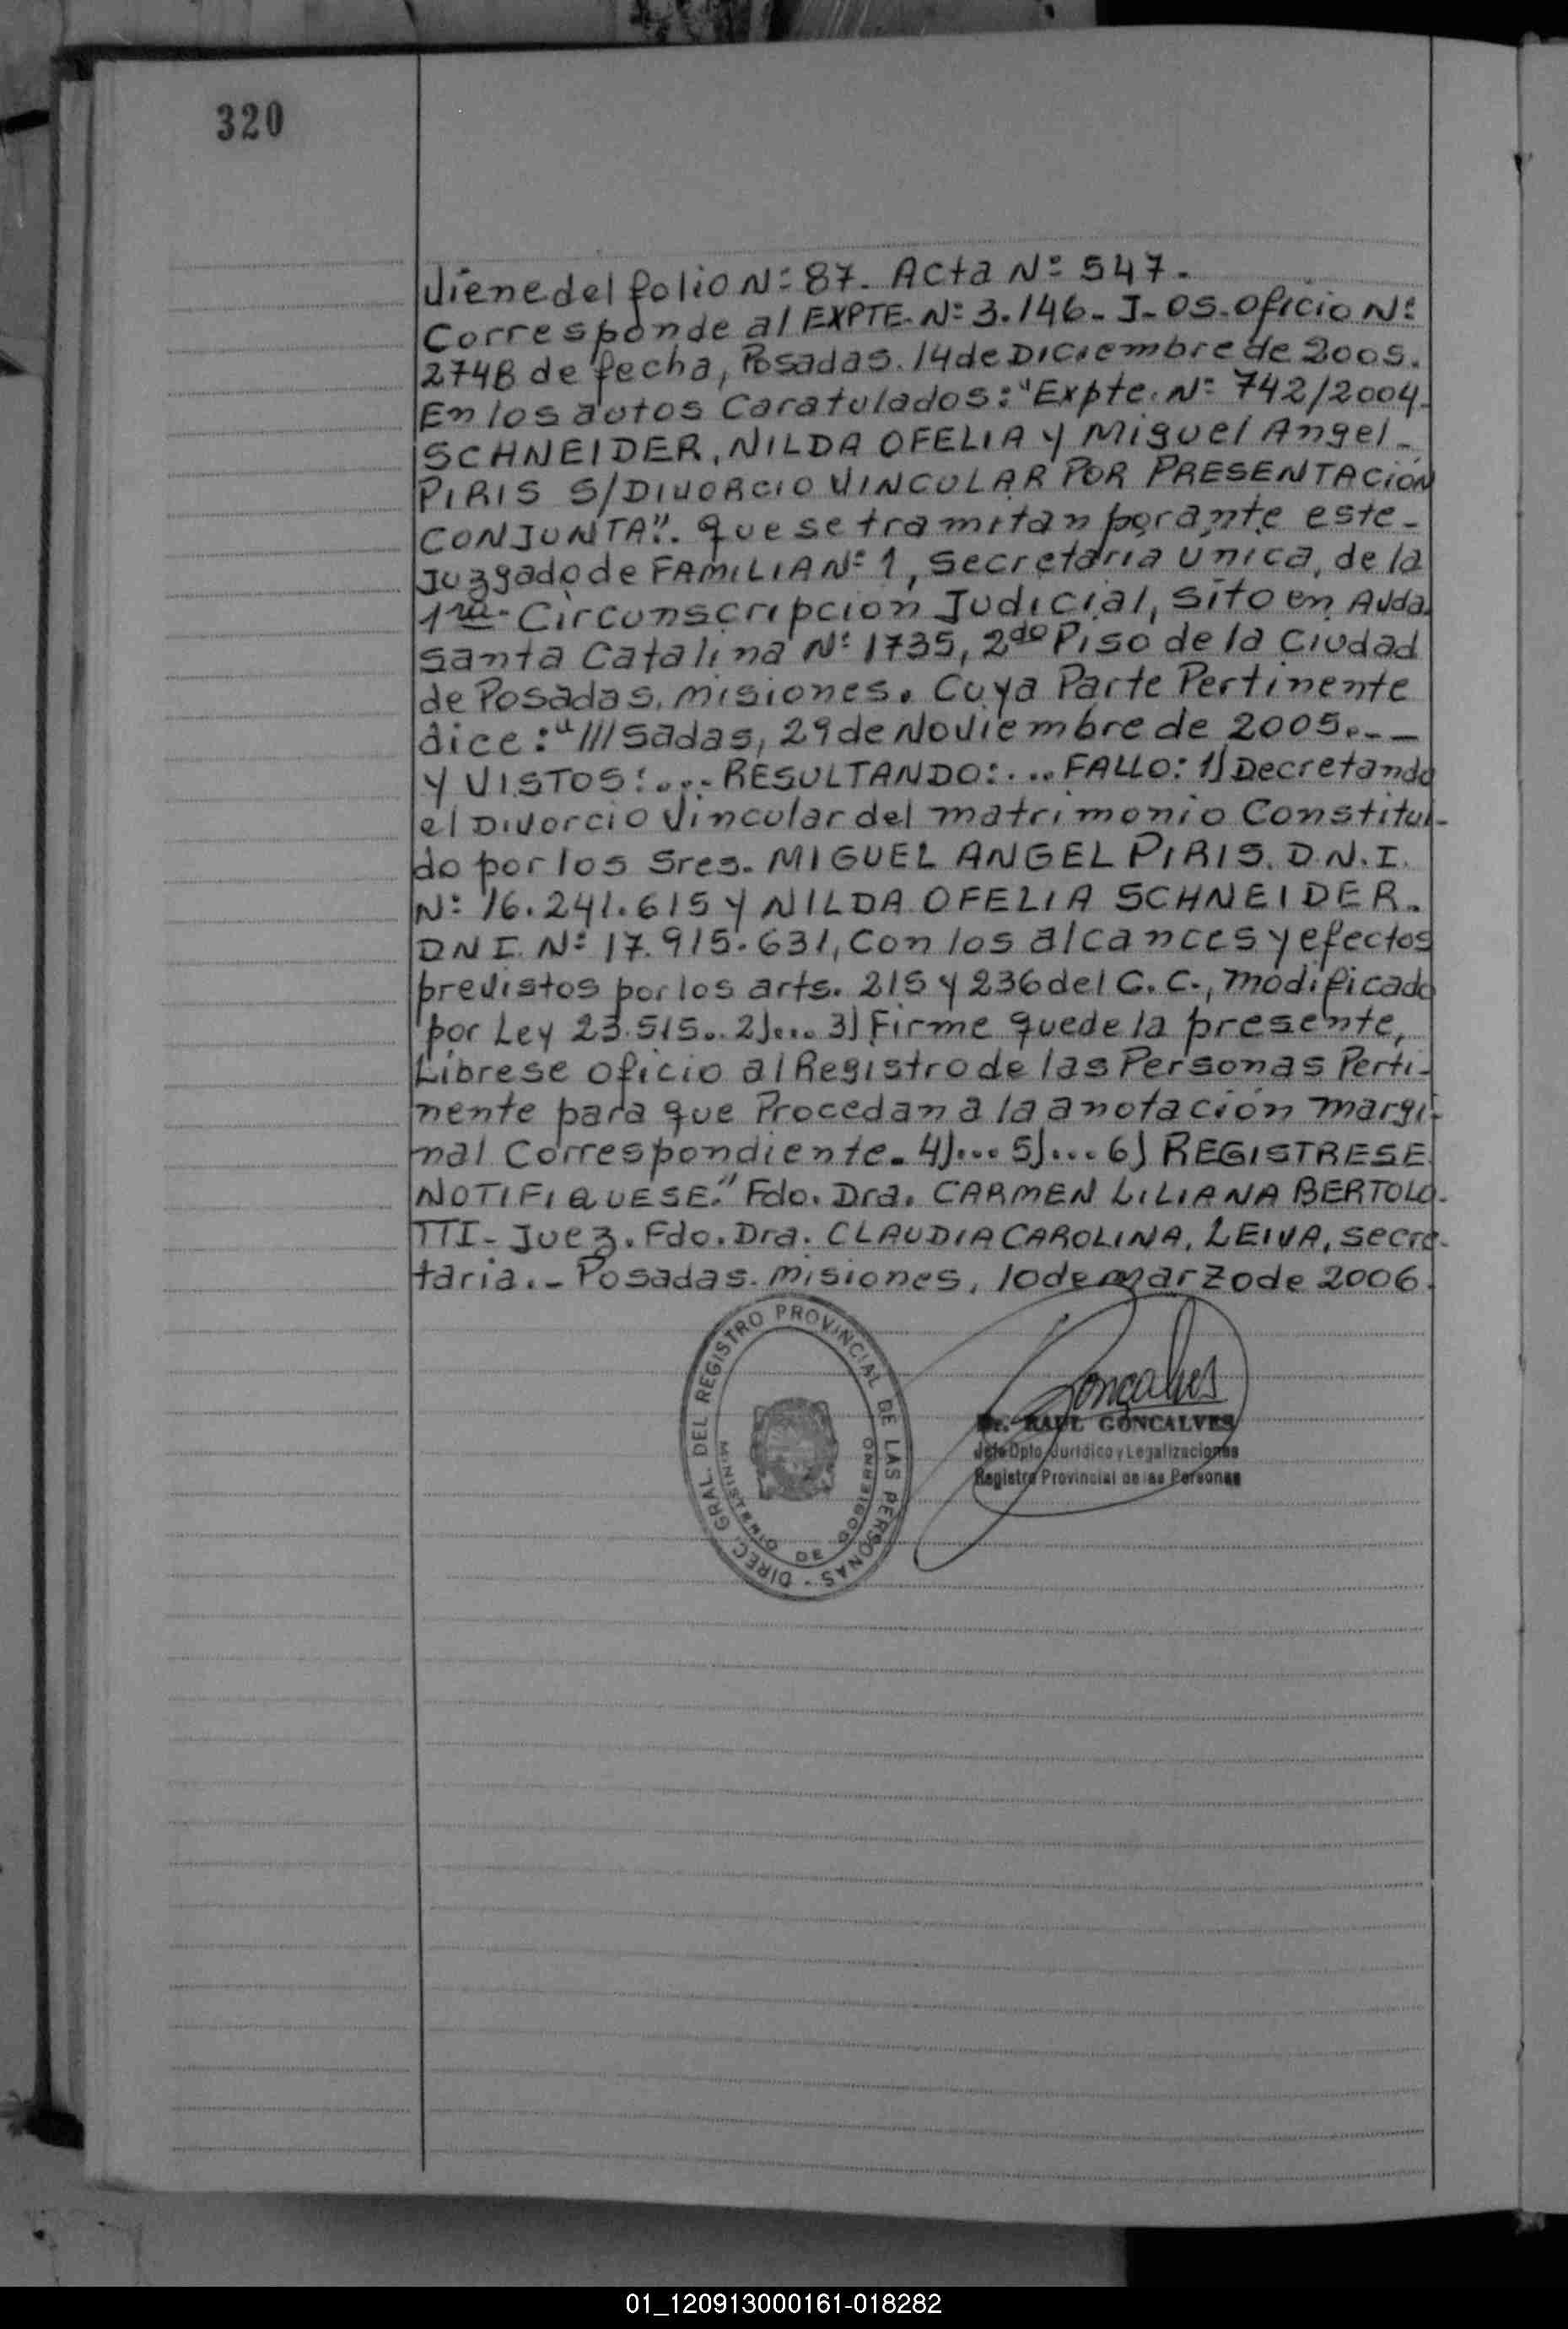 320
Viene del folio Nº 87. Acta Nº 547.
Corresponde al EXPTE. Nº 3.146-J-05. Oficio Nº
2748 de fecha, Posadas. 14 de Diciembre de 2005.
En los autos Caratulados: "Expte. Nº 742/2004.
SCHNEIDER, NILDA OFELIA y Miguel Angel-
PIRIS S/DIVORCIO VINCULAR POR PRESENTACIÓN
CONJUNTA". que se tramitan por ante este-
Juzgado de FAMILIA Nº 1, Secretaría Única, de la
1ra. Circunscripcion Judicial, sito en Avda.
Santa Catalina Nº 1735, 2do Piso de la Ciudad
de Posadas, Misiones. Cuya Parte Pertinente
dice: "///sadas, 29 de Noviembre de 2005.--
Y VISTOS:... RESULTANDO:... FALLO: 1) Decretando
el Divorcio Vincular del matrimonio Constitui-
do por los Sres. MIGUEL ANGEL PIRIS. D.N.I.
Nº 16.241.615 y NILDA OFELIA SCHNEIDER.
DNI. Nº 17.915.631, Con los alcances y efectos
previstos por los arts. 215 y 236 del C.C., modificado
por Ley 23.515.. 2)... 3) Firme quede la presente,
Líbrese oficio al Registro de las Personas Perti-
nente para que Procedan a la anotación margi-
nal Correspondiente. 4)... 5)... 6) REGISTRESE.
NOTIFIQUESE." Fdo. Dra. CARMEN LILIANA BERTOLO-
TTI- Juez. Fdo. Dra. CLAUDIA CAROLINA, LEIVA, secre-
taria.- Posadas. Misiones, 10 de marzo de 2006.
DIREC. GRAL. DEL REGISTRO PROVINCIAL DE LAS PERSONAS -
MINISTERIO DE GOBIERNO
Goncalves
Dr. RAUL GONCALVES
Jefe Dpto. Jurídico y Legalizaciones
Registro Provincial de las Personas
01_120913000161-018282